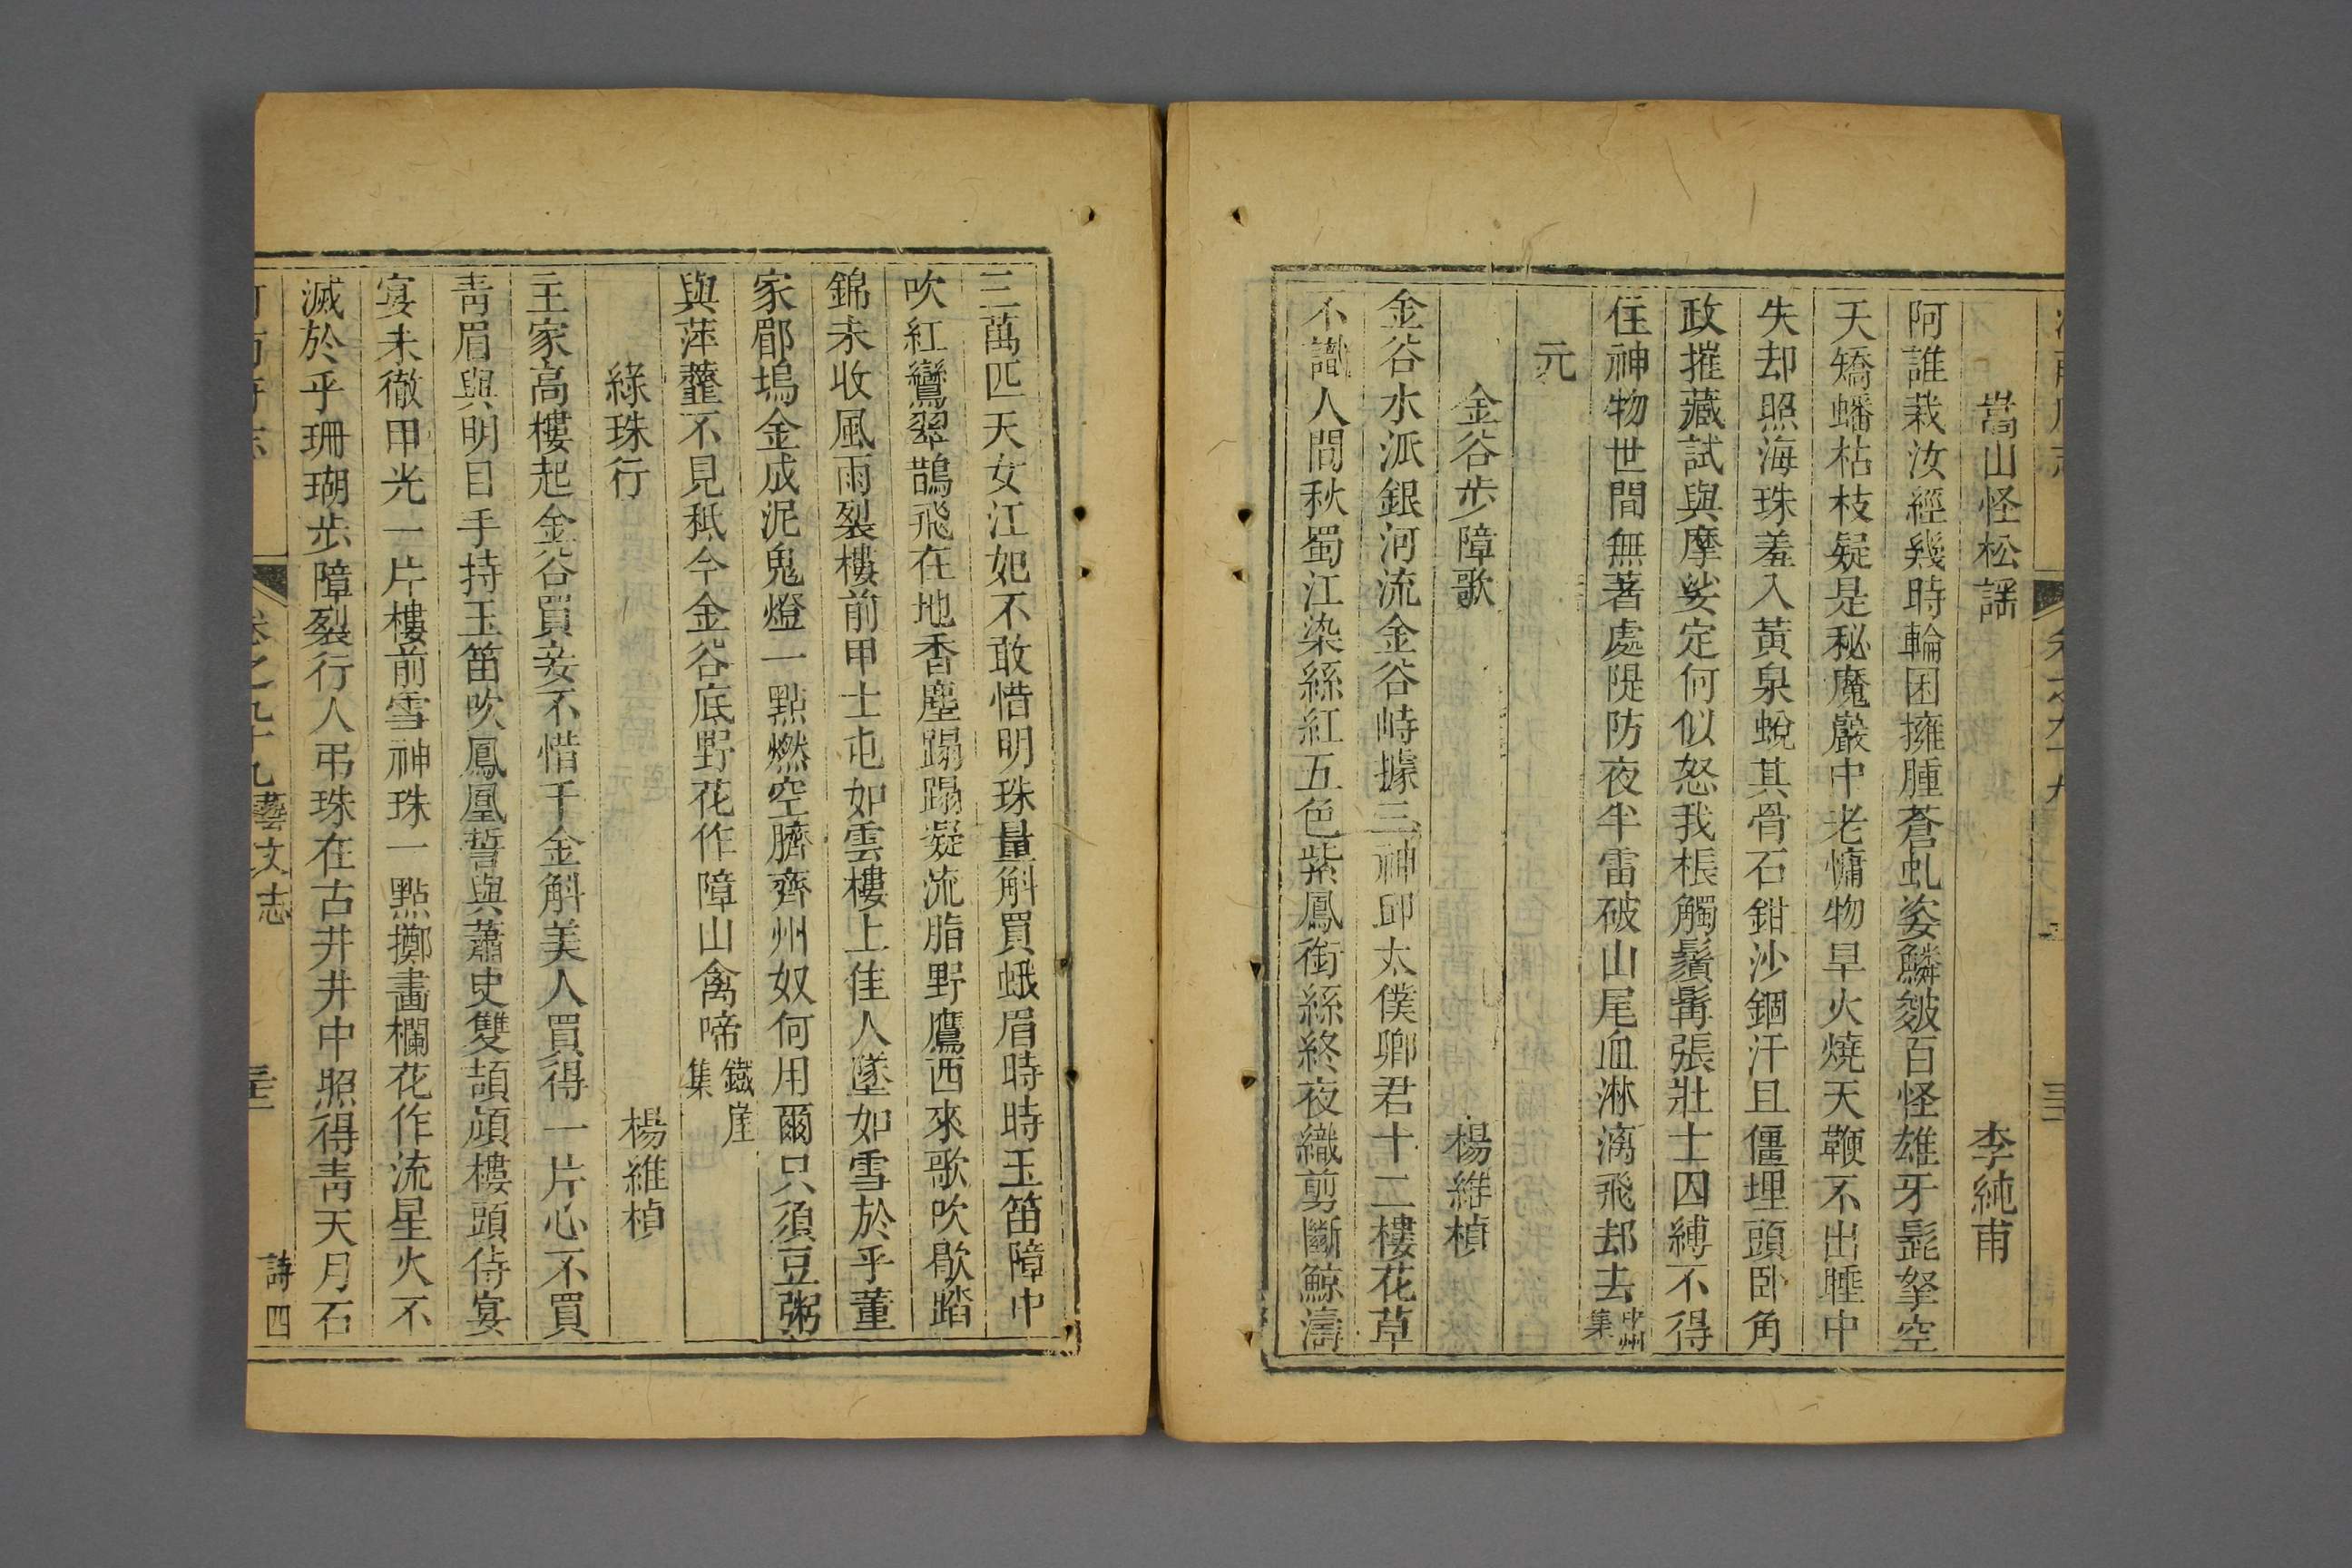 嵩山怪松謡 李純甫
阿誰栽汝經幾時輪囷擁腫蒼虬姿鱗皴百怪雄牙髭拏空
天矯蟠枯枝疑是秘魔巖中老慵物旱火燒天鞭不出睡中
失却照海珠羞入黃泉蛻其骨石鉗沙錮汗且僵埋頭卧角
政摧藏試與摩挲定何似怒我棖觸鬚髯張壯士囚縛不得
住神物世間無著處隄防夜半雷破山尾血淋漓飛却去中州集
元
金谷步障歌 楊維楨
金谷水派銀河流金谷峙據三神邱太僕卿君十二樓花草
不識人間秋蜀江染絲紅五色紫鳳銜絲終夜織剪斷鯨濤
三萬匹天女江妃不敢惜明珠量斛買蛾眉時時玉笛障中
吹紅鸞翠鵲飛在地香塵蹋蹋凝流脂野鷹西來歌吹歇踏
錦未收風雨裂樓前甲士屯如雲樓上佳人墜如雪於乎董
家郿塢金成泥鬼燈一點燃空臍齊州奴何用爾只須豆粥
與萍虀不見秪今金谷底野花作障山禽啼鐵崖集
綠珠行 楊維楨
主家高樓起金谷買妾不惜千金斛美人買得一片心不買
青眉與明目手持玉笛吹鳳凰誓與蕭史雙頡頏樓頭侍宴
宴未徹甲光一片樓前雪神珠一點擲畫欄花作流星火不
滅於乎珊瑚步障裂行人弔珠在古井井中照得靑天月石
卷之九十九藝文志 詩四